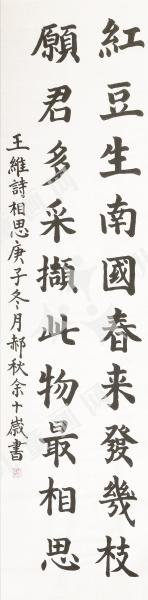 紅豆生南國春来發幾枝
願君多采擷此物最相思
王維詩相思庚子冬月郝秋余十歲書